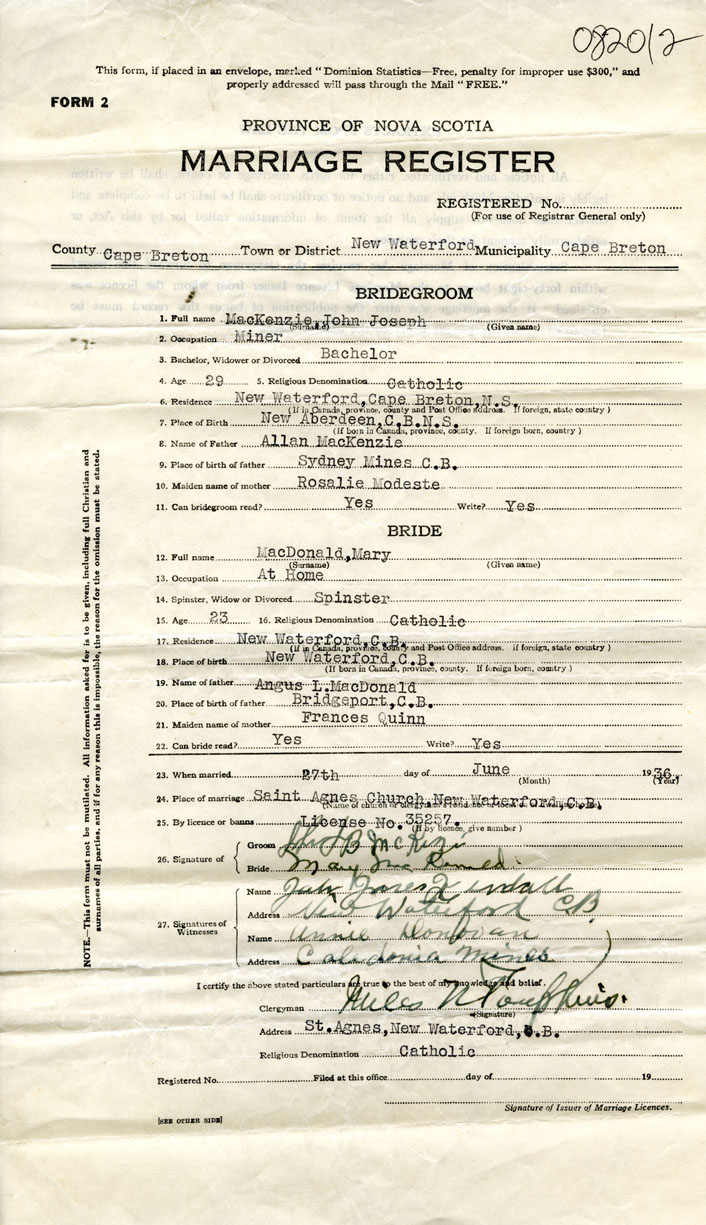 082012
This form, if placed in an envelope, marked "Dominion Statistics—Free, penalty for improper use $300," and
properly addressed will pass through the Mail "FREE."
FORM 2
PROVINCE OF NOVA SCOTIA
MARRIAGE REGISTER
REGISTERED No.
(For use of Registrar General only)
County Cape Breton Town or District New Waterford Municipality Cape Breton
BRIDEGROOM
1. Full name MacKenzie, John Joseph
(Surname) (Given name)
2. Occupation Miner
3. Bachelor, Widower or Divorced Bachelor
4. Age 29 5. Religious Denomination Catholic
6. Residence New Waterford, Cape Breton, N.S.
(If in Canada, province, county and Post Office address. If foreign, state country)
7. Place of Birth New Aberdeen, C.B.N.S.
(If born in Canada, province, county. If foreign born, country)
8. Name of Father Allan MacKenzie
9. Place of birth of father Sydney Mines C.B.
10. Maiden name of mother Rosalie Modeste
11. Can bridegroom read? Yes Write? Yes
BRIDE
12. Full name MacDonald, Mary
(Surname) (Given name)
13. Occupation At Home
14. Spinster, Widow or Divorced Spinster
15. Age 23 16. Religious Denomination Catholic
17. Residence New Waterford, C.B.
(If in Canada, province, county and Post Office address. if foreign, state country)
18. Place of birth New Waterford, C.B.
(If born in Canada, province, county. If foreign born, country)
19. Name of father Angus L. MacDonald
20. Place of birth of father Bridgeport, C.B.
21. Maiden name of mother Frances Quinn
22. Can bride read? Yes Write? Yes
23. When married 27th day of June 1936.
(Month) (Year)
24. Place of marriage Saint Agnes Church, New Waterford, C.B.
25. By licence or banns License No. 35257.
(If by licence, give number)
26. Signature of
Groom
Bride Mary Mac Donald
27. Signatures of Witnesses
Name
Address New Waterford CB
Name Annie Donovan
Address Caledonia Mines
I certify the above stated particulars are true to the best of my knowledge and belief.
Clergyman Miles N Tompkins.
(Signature)
Address St. Agnes, New Waterford, C.B.
Religious Denomination Catholic
Registered No. Filed at this office day of 19
Signature of Issuer of Marriage Licences.
[SEE OTHER SIDE]
NOTE.—This form must not be mutilated. All information asked for is to be given, including full Christian and
surnames of all parties, and if for any reason this is impossible, the reason for the omission must be stated.